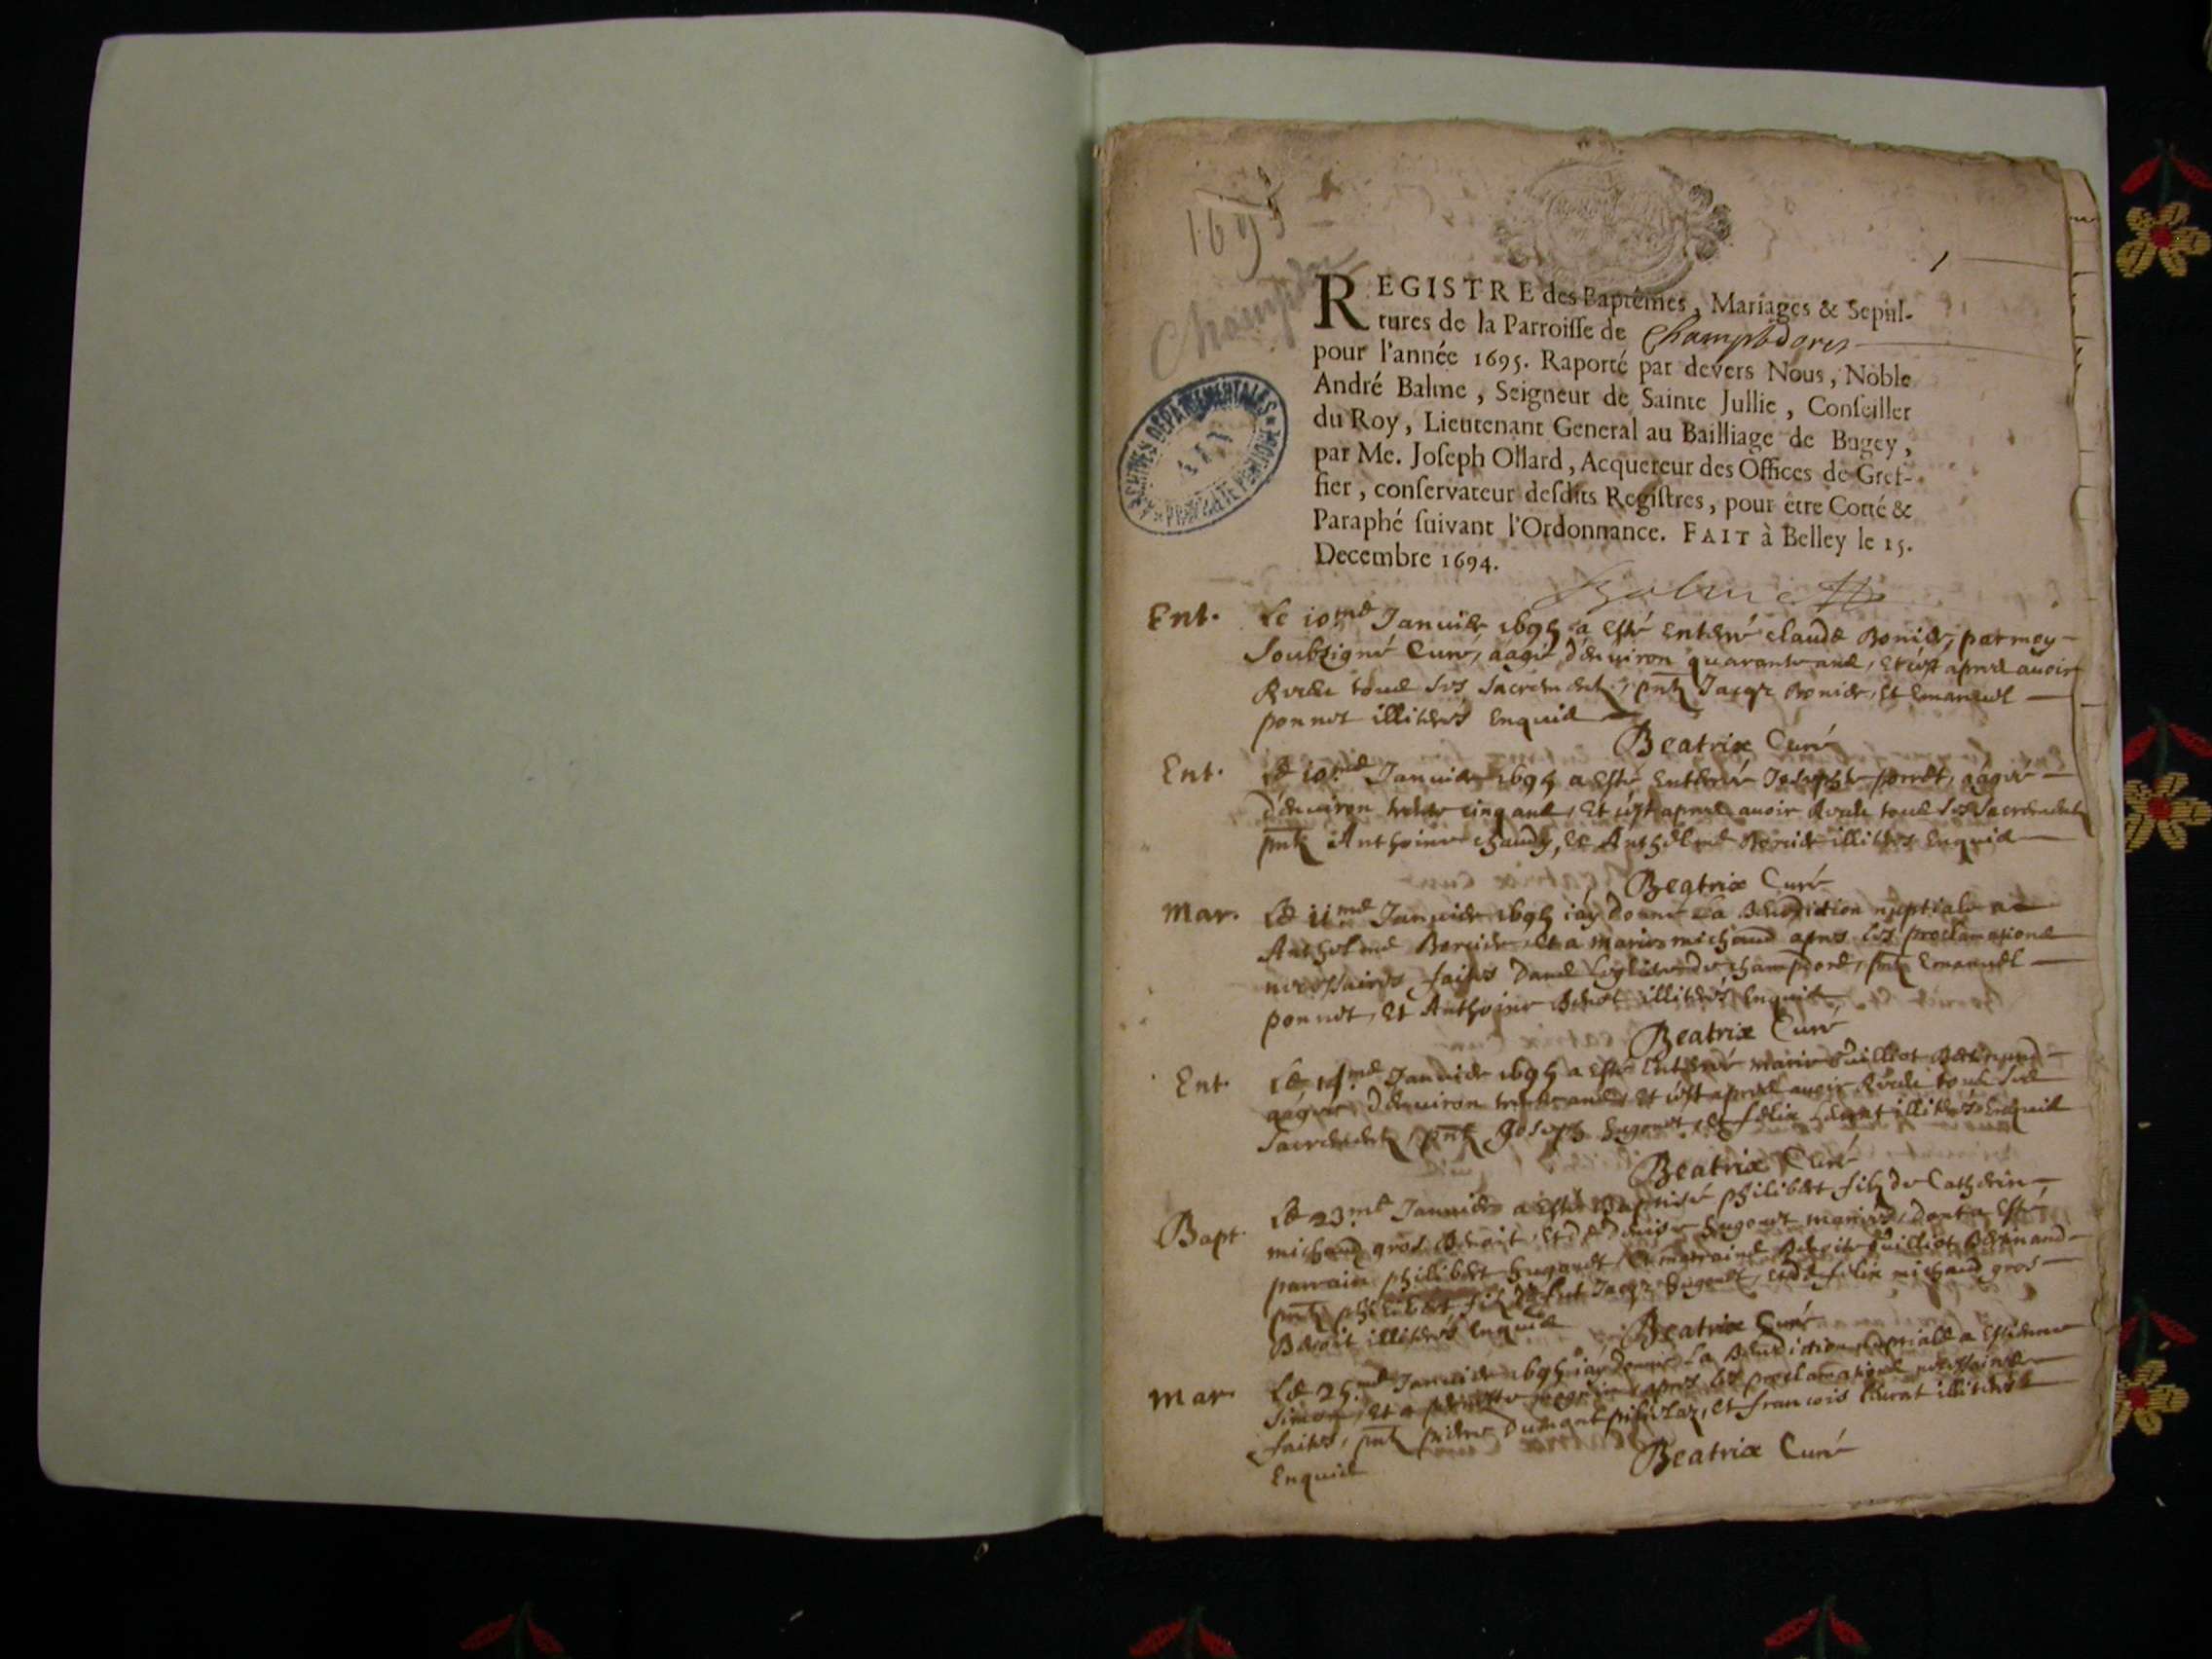 1695
1
Champdor
REGISTRE des Baptêmes, Mariages & Sepul-
tures de la Parroisse de Champdores
pour l'année 1695. Raporté par devers Nous, Noble
André Balme, Seigneur de Sainte Jullie, Conseiller
du Roy, Lieutenant General au Bailliage de Bugey,
par Me. Joseph Ollard, Acquereur des Offices de Gref-
fier, conservateur desdits Registres, pour être Cotté &
Paraphé suivant l'Ordonnance. FAIT à Belley le 15.
Decembre 1694.
ARCHIVES DEPARTEMENTALES AIN
Balme
Ent. Le 10.me Janvier 1695 a esté enterré claude Bonier, par moy
soubsigné Curé, aagé d'environ quarante ans, et c'est apres avoir
Receu tous ses sacrements, pnts Jacqz Bonier, et Emanuel
ponnet illiterés Enquis
Beatrix Curé
Ent. Le 10.me Janvier 1695 a esté enterré Josephte porret, aagée
d'environ trente cinq ans, et c'est apres avoir Receu tous ses sacrements
pnts Anthoine chaudy, et Anthelme Borcier illiterés Enquis
Beatrix Curé
Mar. Le 11.me Janvier 1695 i'ay donné La Benediction nuptiale a
Anthelme Borcier, et a marie michaud apres les proclamations
necessaires faites dans l'eglise de champdore, pnts Emanuel
ponnet, et Anthoine Benot illiterés Enquis
Beatrix Curé
Ent. Le 14.me Janvier 1695 a esté enterré marie Guilliot Bertinand
aagée d'environ trente ans, et c'est apres avoir Receu tous ses
sacrements, pnts Joseph hugonet, et felix illiterés Enquis
Beatrix Curé
Bapt. Le 23.me Janvier a esté Baptisé philibert filz de Catherin
michaud gros Benoit, et de denise hugonet mariés, dont a esté
parrain philibert hugonet, et marraine Benoite Guilliot Bertinand
pnts philibert filz de fut Jacqz hugonet, et de felix michaud gros
Benoit illiterés Enquis Beatrix Curé
Mar. Le 25.me Janvier 1695 i'ay donné La Benediction nuptiale a Estienne
Simon, et a apres les proclamations necessaires
faites, pnts pierre Dumont, et francois illiterés
Enquis
Beatrix Curé